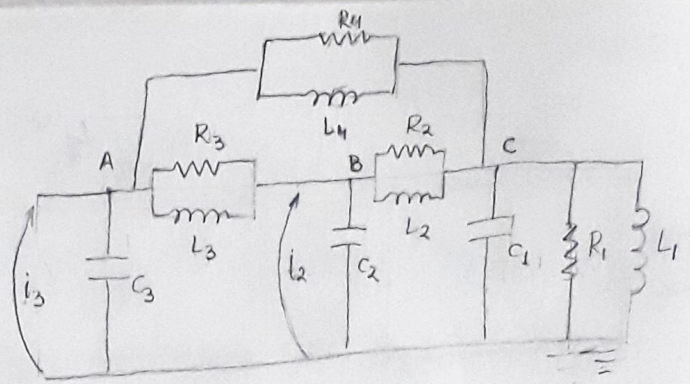 R4
L4
R3
R2
A
B
C
L3
L2
i3
C3
i2
C2
C1
R1
L1